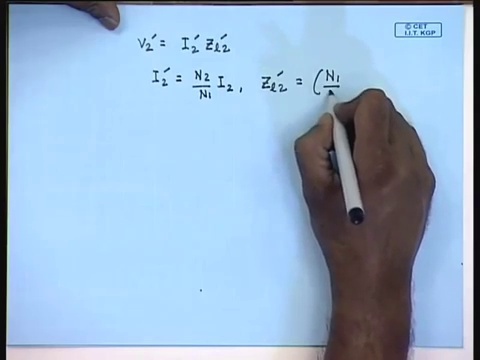 © CET
I.I.T. KGP
V₂′ = I₂′ Z_ℓ₂′
I₂′ = N₂/N₁ I₂, Z_ℓ₂′ = (N₁